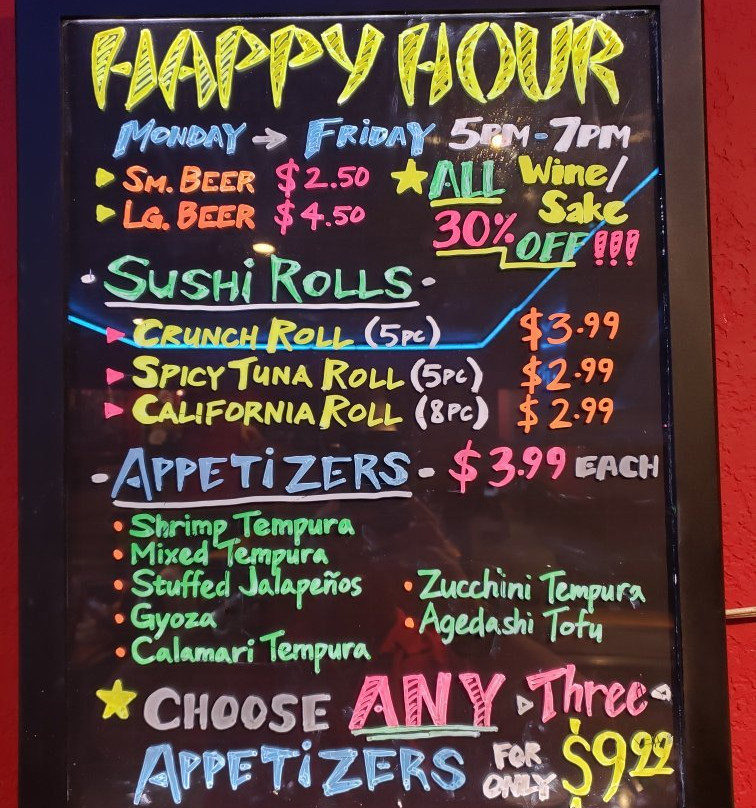 HAPPY HOUR
MONDAY → FRIDAY 5PM-7PM
▶ SM. BEER $2.50
▶ LG. BEER $4.50
★ ALL Wine/
Sake
30% OFF!!!
· SUSHI ROLLS ·
▶ CRUNCH ROLL (5PC) $3.99
▶ SPICY TUNA ROLL (5PC) $2.99
▶ CALIFORNIA ROLL (8PC) $2.99
- APPETIZERS - $3.99 EACH
• Shrimp Tempura
• Mixed Tempura
• Stuffed Jalapeños
• Gyoza
• Calamari Tempura
• Zucchini Tempura
• Agedashi Tofu
★ CHOOSE ANY ▷ Three ◁
APPETIZERS FOR ONLY $9.99